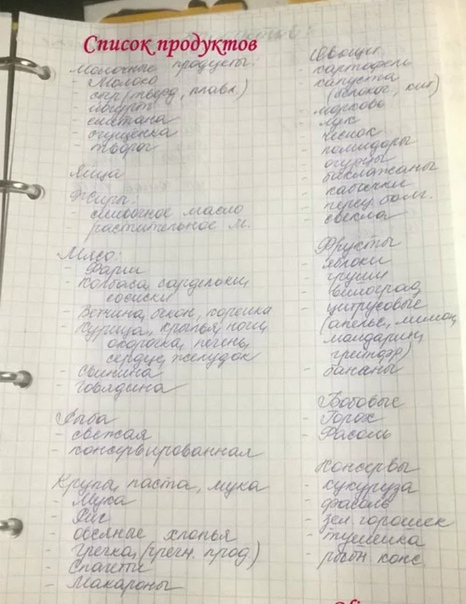 Список продуктов
Молочные продукты:
- Молоко
- сыр (тверд, плавл.)
- йогурт
- сметана
- сгущенка
- творог
Яйца
Жиры:
- сливочное масло
- растительное м.
Мясо:
- Фарш
- Колбаса, сардельки,
сосиски
- Ветчина, бекон, корейка
- Курица, крылья, ноги,
окорочка, печень,
сердце, желудок
- Свинина
- говядина
Рыба
- свежая
- консервированная
Крупы, паста, мука
- Мука
- Рис
- овсяные хлопья
- гречка, (гречн. прод)
- Спагетти
- Макароны
Овощи:
- картофель
- капуста
(белокоч, кит)
- морковь
- лук
- чеснок
- помидоры
- огурцы
- баклажаны
- кабачки
- перец болг.
- свекла
Фрукты
- яблоки
- груши
- виноград
- цитрусовые
(апельс, лимон,
мандарин,
грейпфр)
- бананы
Бобовые
- Горох
- Фасоль
Консервы
- кукуруза
- фасоль
- зел. горошек
- тушенка
- рыбн. конс.